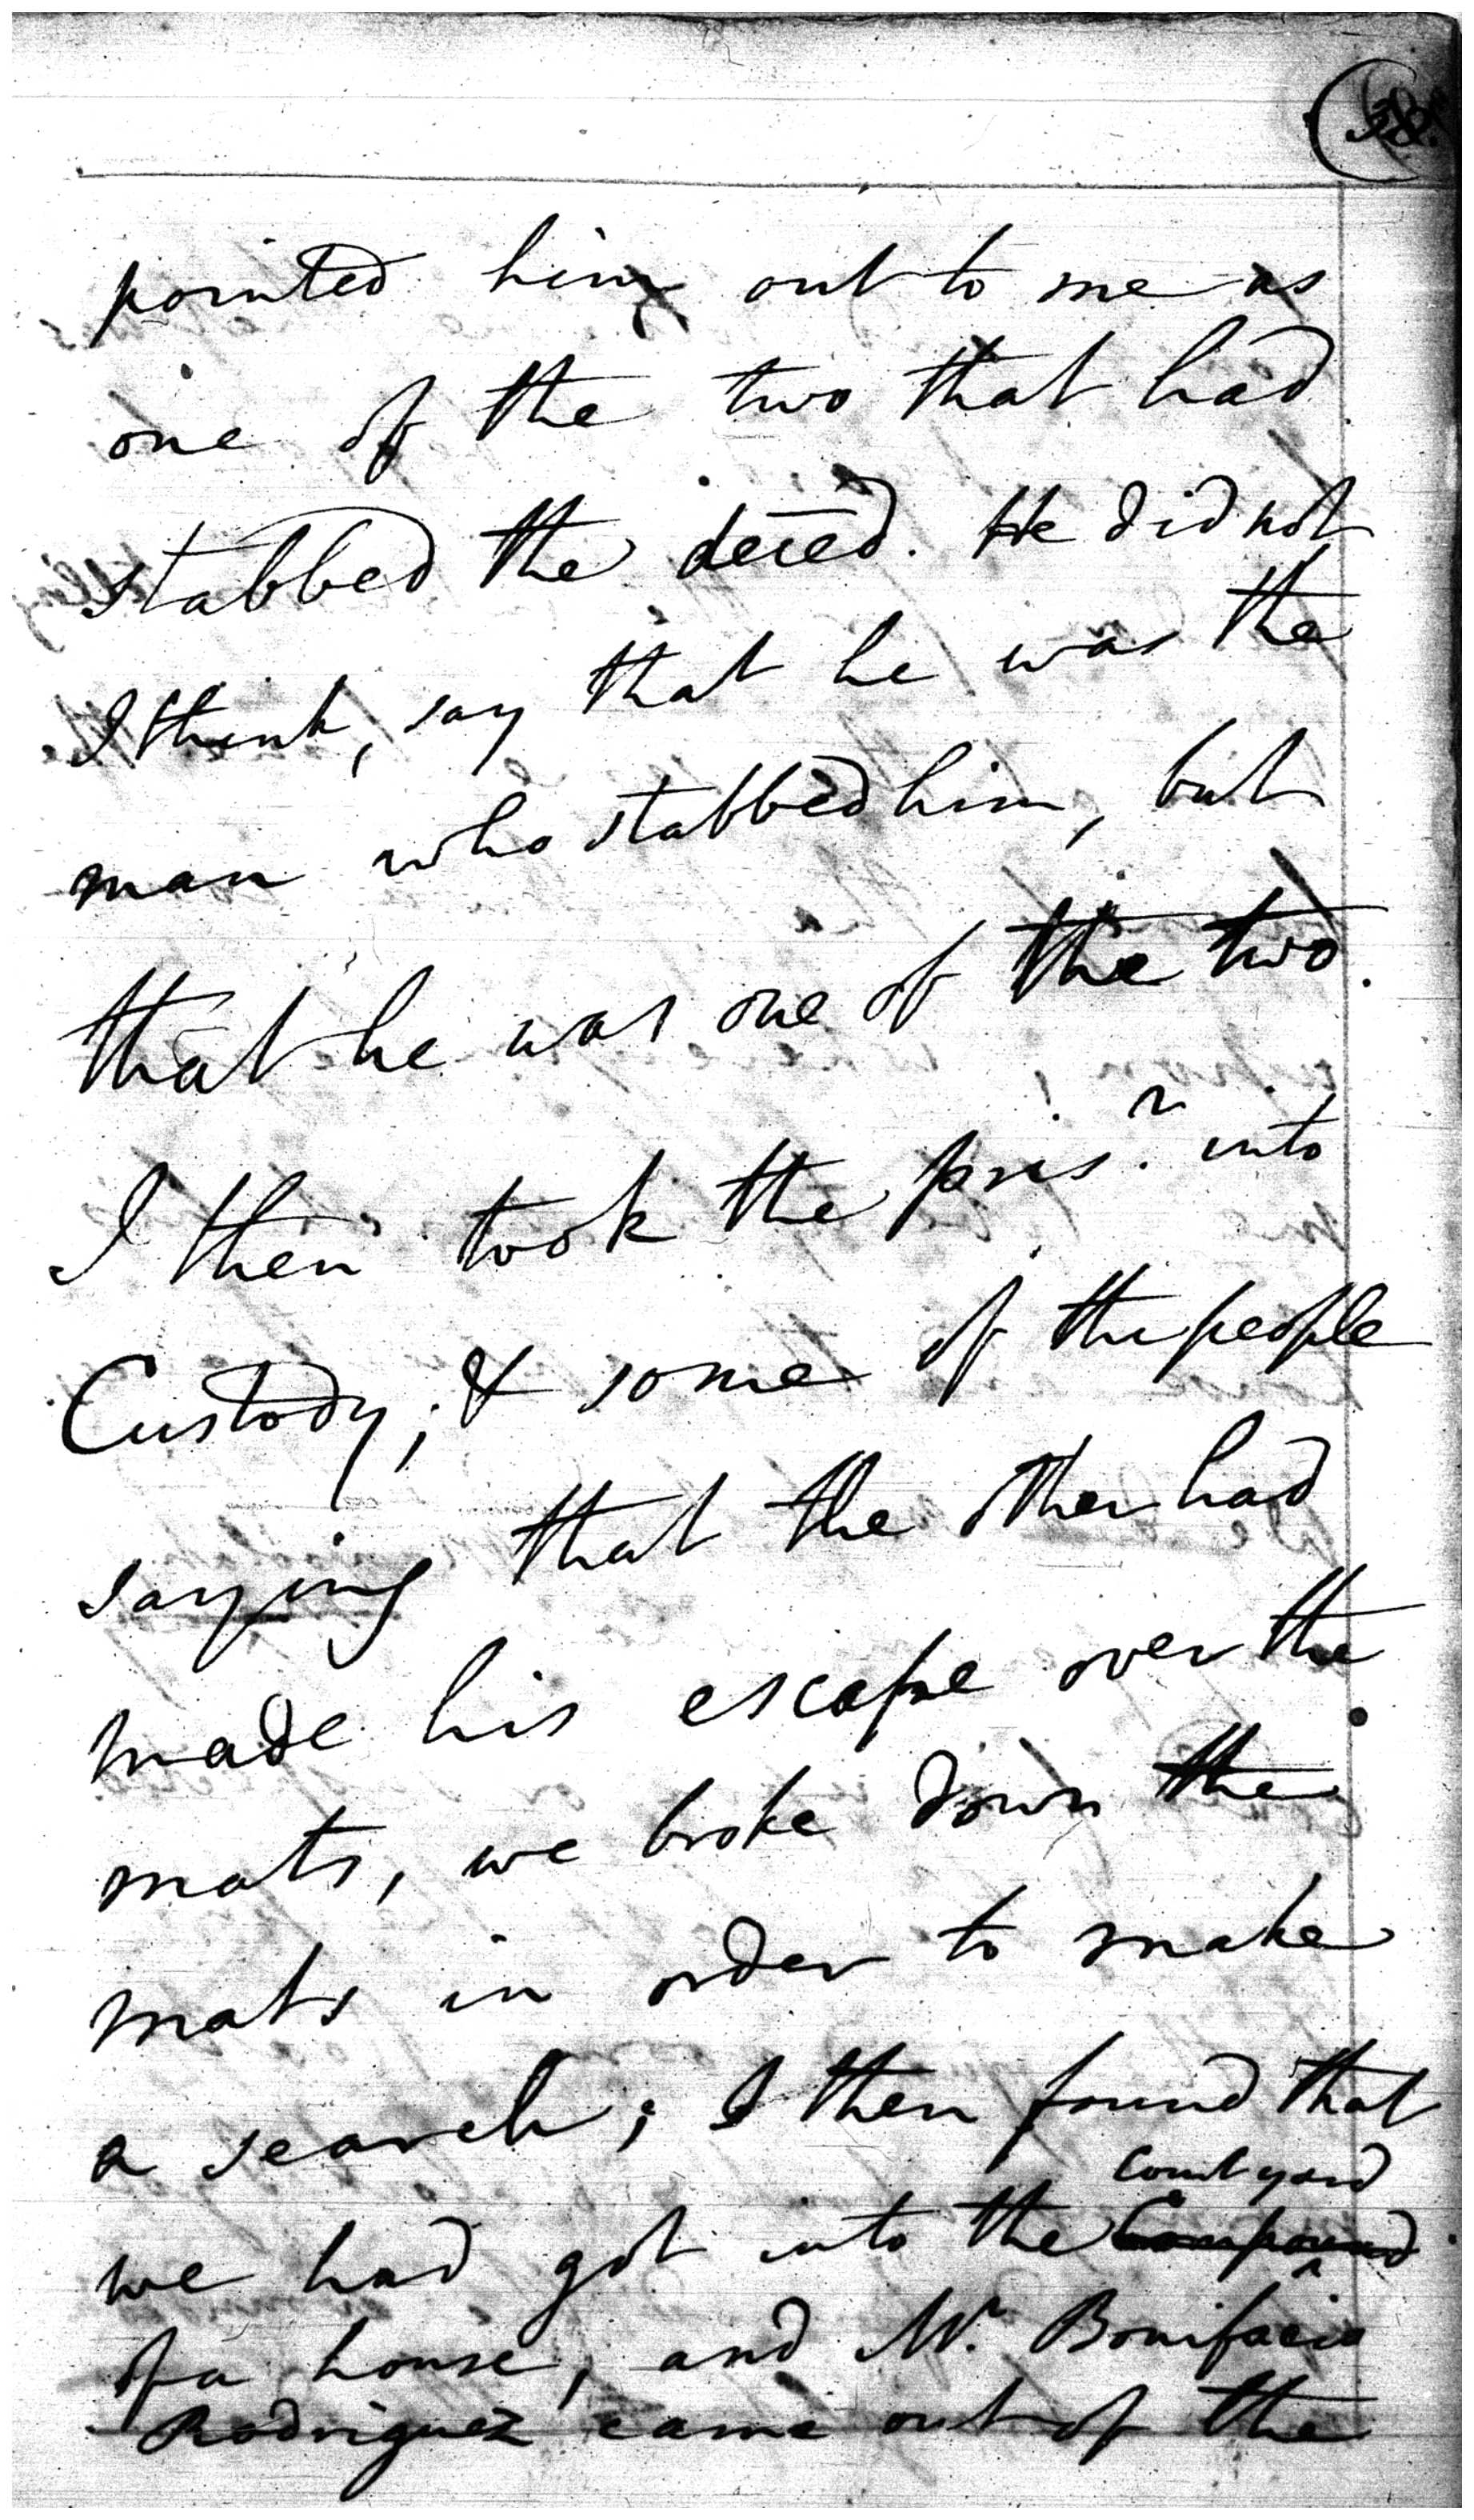 pointed him out to me as
one of the two that had
stabbed the deced. He did not
I think, say that he was the
man who stabbed him, but
that he was one of the two.
I then took the pris.r into
Custody; & some of the people
saying that the other had
made his escape over the
mats, we broke down the
mats in order to make
a search; I then found that
courtyard
we had got into the Compound
of a house, and Mr. Bonifacio
Rodriguez came out of the